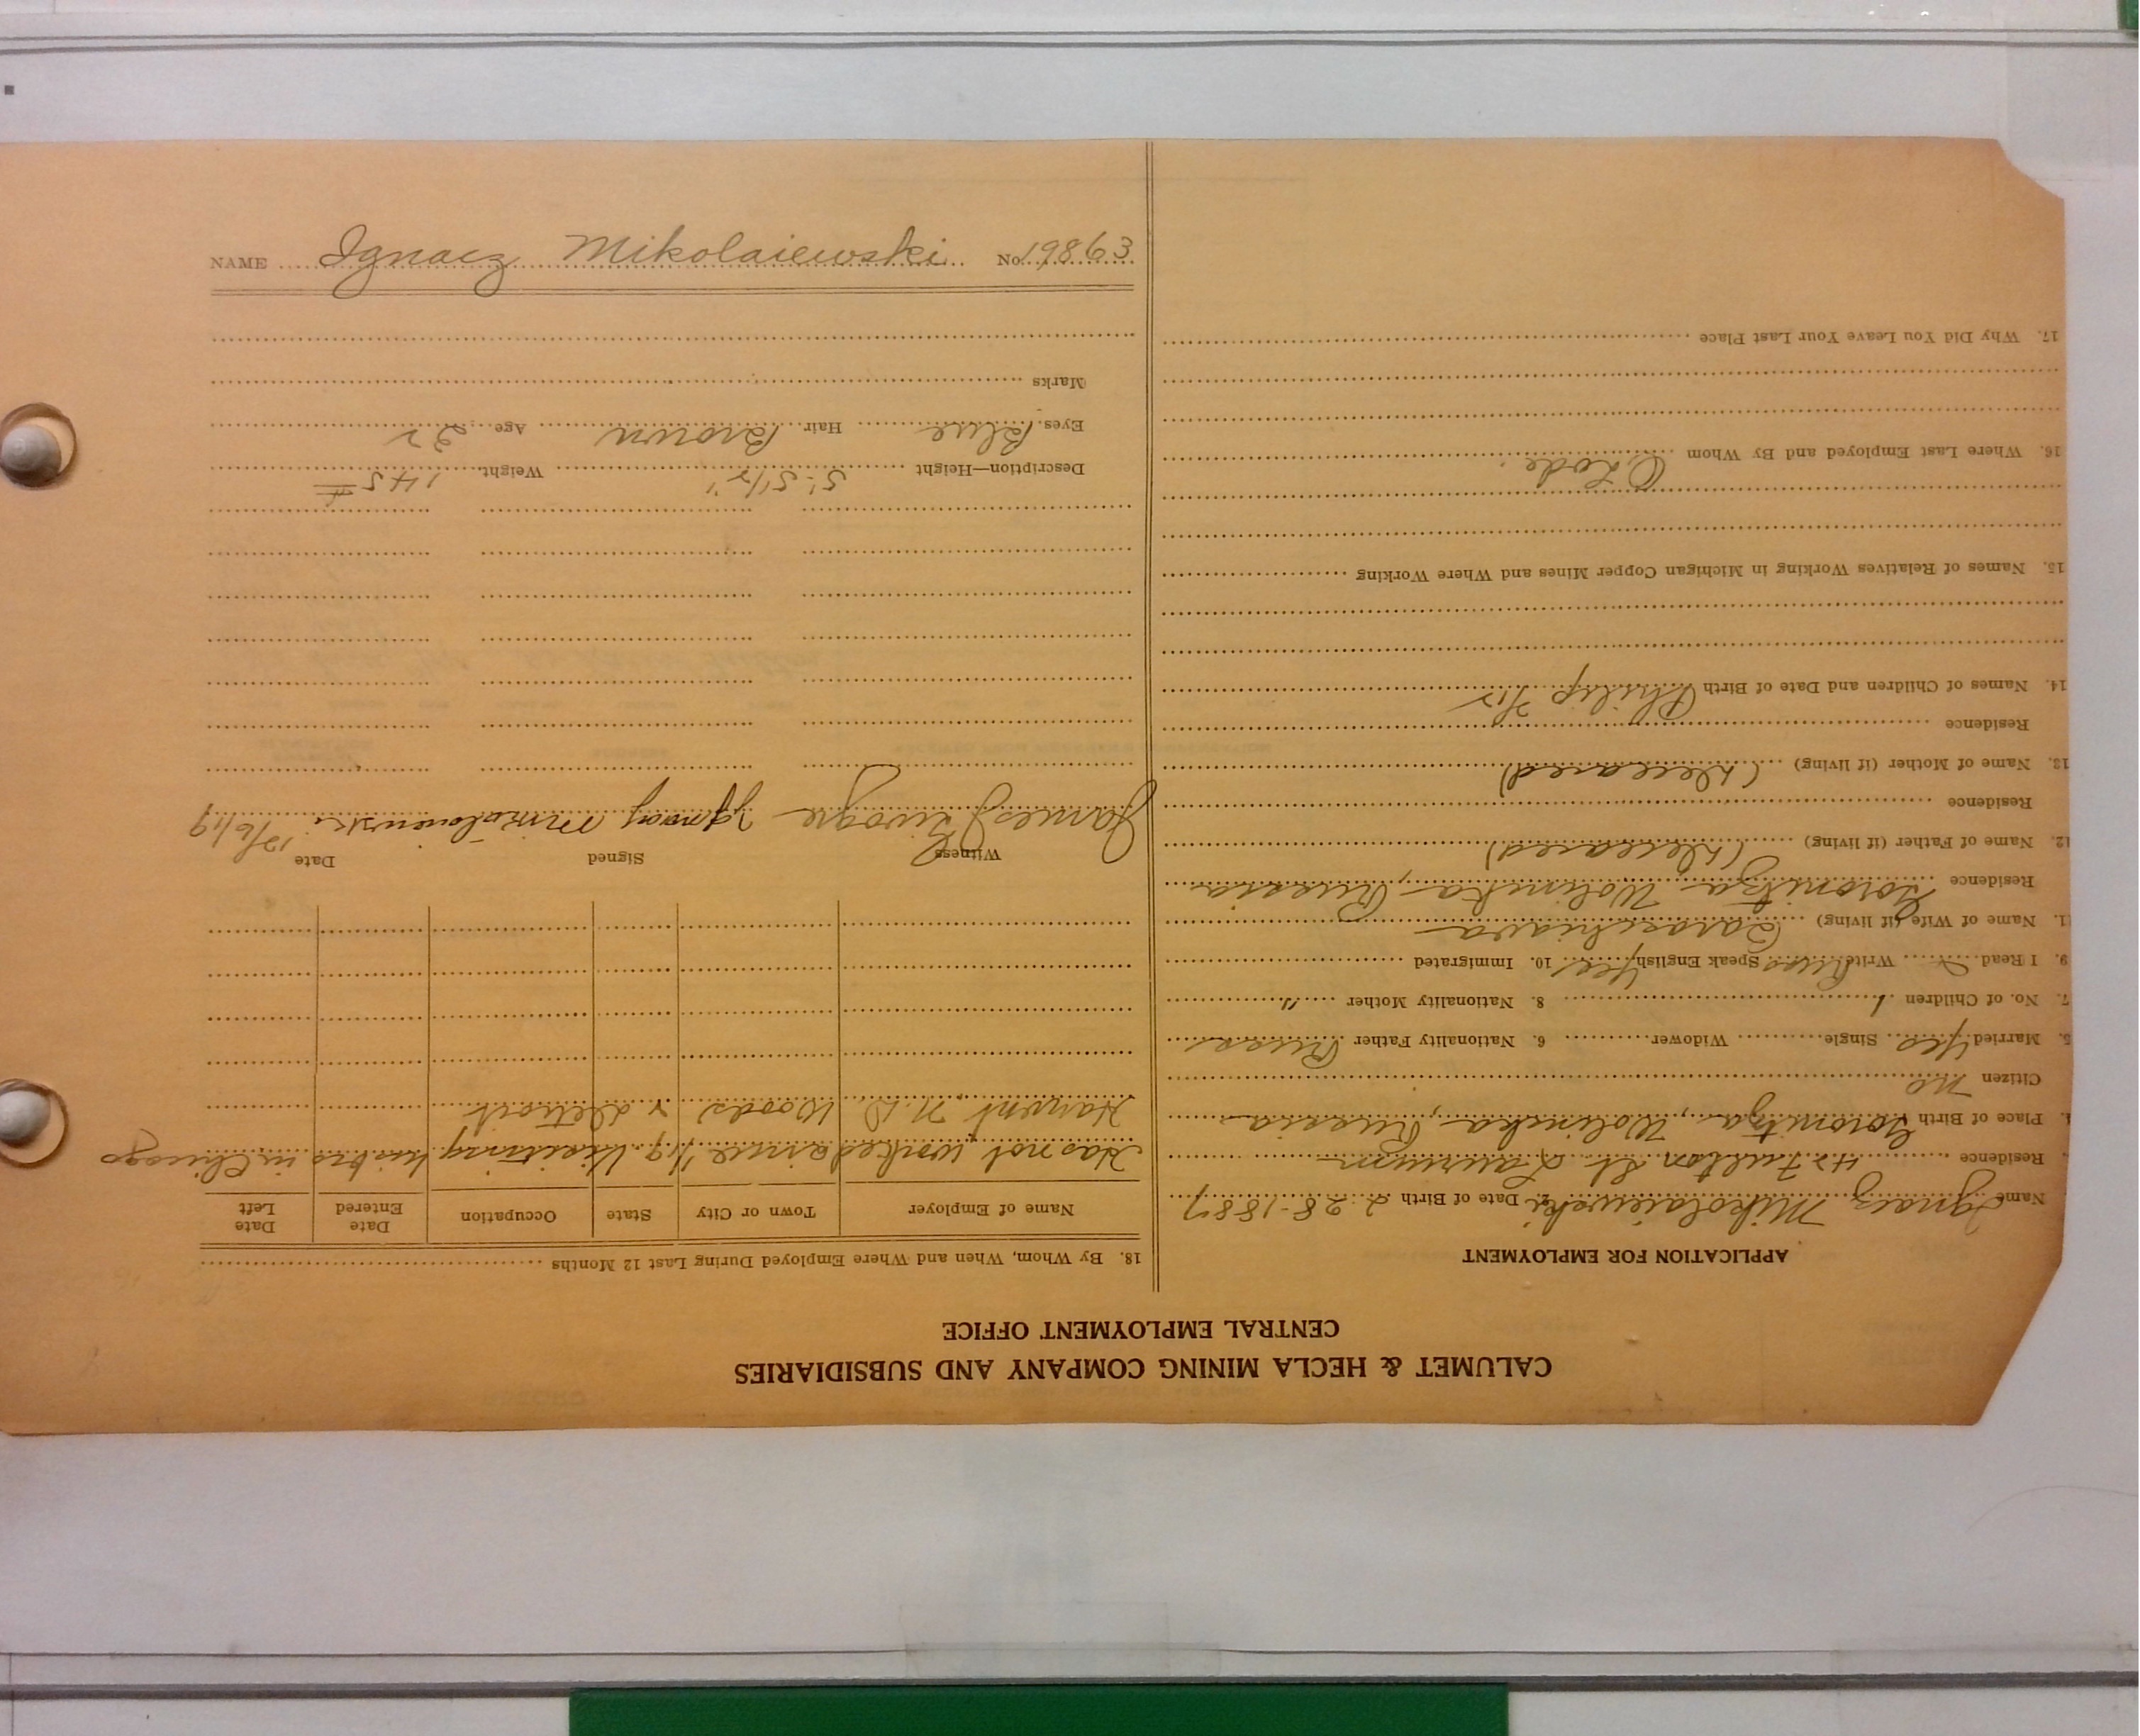 CALUMET & HECLA MINING COMPANY AND SUBSIDIARIES
CENTRAL EMPLOYMENT OFFICE
APPLICATION FOR EMPLOYMENT
Name Ignacz Mikolaiewski 2. Date of Birth 2-28-1887
Residence 42 Fulton St Laurium
4. Place of Birth Goronitza, Wolinska, Russia
Citizen no
5. Married yes Single Widower 6. Nationality Father Russ
7. No. of Children 1 8. Nationality Mother "
9. I Read Write Russ Speak English yes 10. Immigrated
11. Name of Wife (if living)
Residence Goronitza, Wolinska, Russia
12. Name of Father (if living) (Deceased)
Residence
13. Name of Mother (if living) (Deceased)
Residence
14. Names of Children and Date of Birth Philip 7/12
15. Names of Relatives Working in Michigan Copper Mines and Where Working
16. Where Last Employed and By Whom O. Lode.
17. Why Did You Leave Your Last Place
18. By Whom, When and Where Employed During Last 12 Months
Name of Employer Town or City State Occupation Date Entered Date Left
Has not worked since 1/19. Visiting his bro in Chicago
Harvest N.D. Woods & Detroit
Witness Signed Date
James Ignacy Mikolaiewski 12/6/19
Description—Height 5'-5 1/2" Weight 145 #
Eyes Blue Hair Brown Age 32
Marks
NAME Ignacz Mikolaiewski No 19863